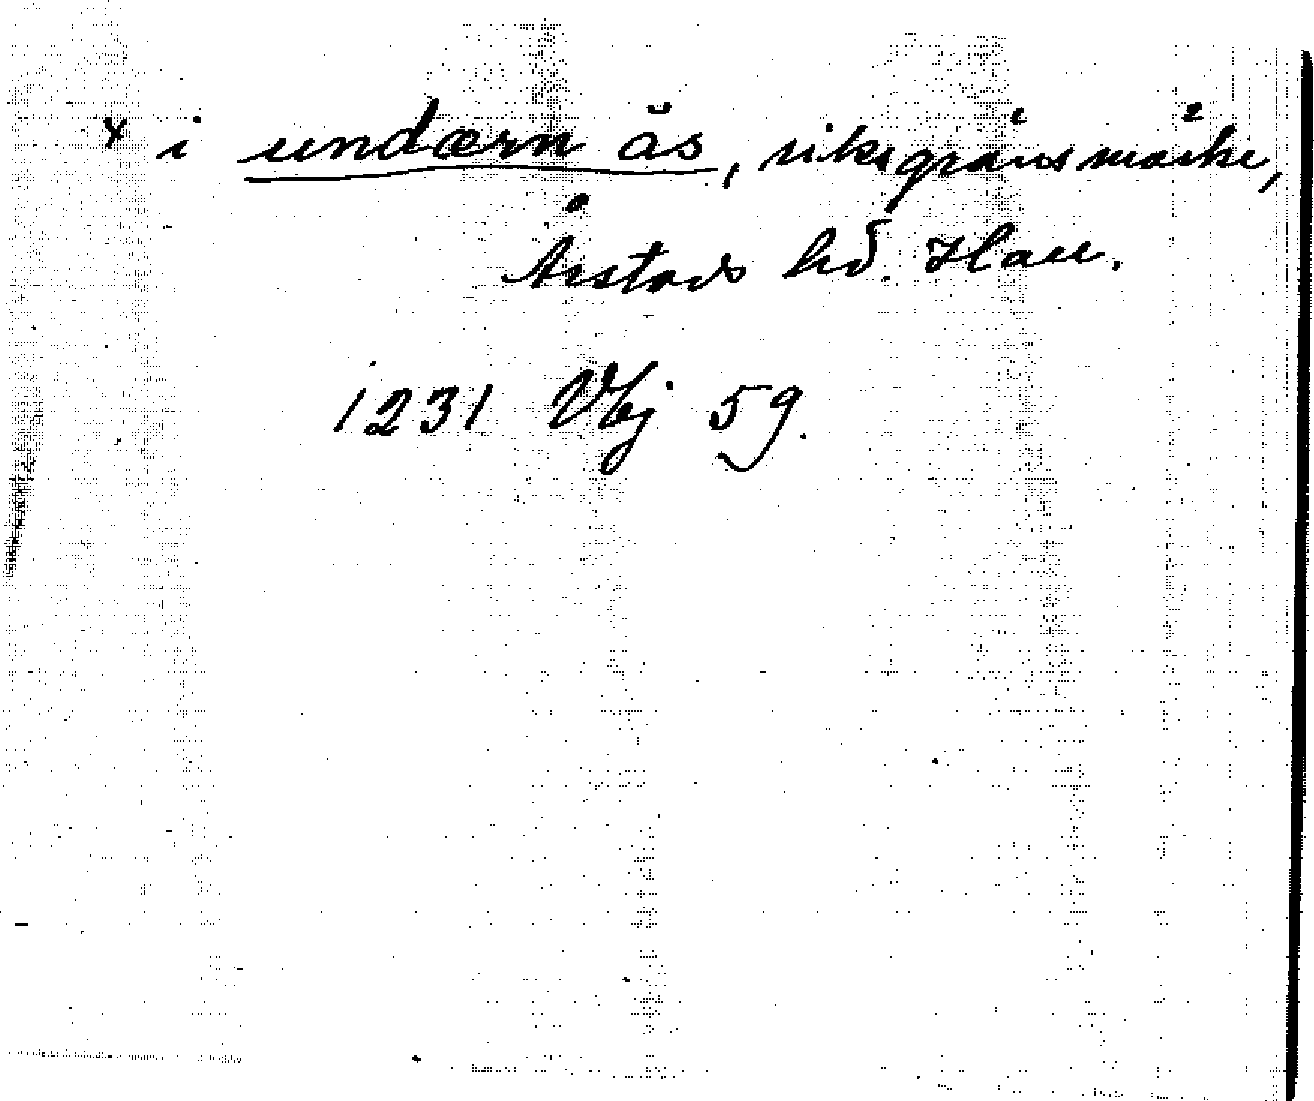 x i undærn ås, riksgränsmärke,
Årstads hd. Hall.
1231 Vbj 59.